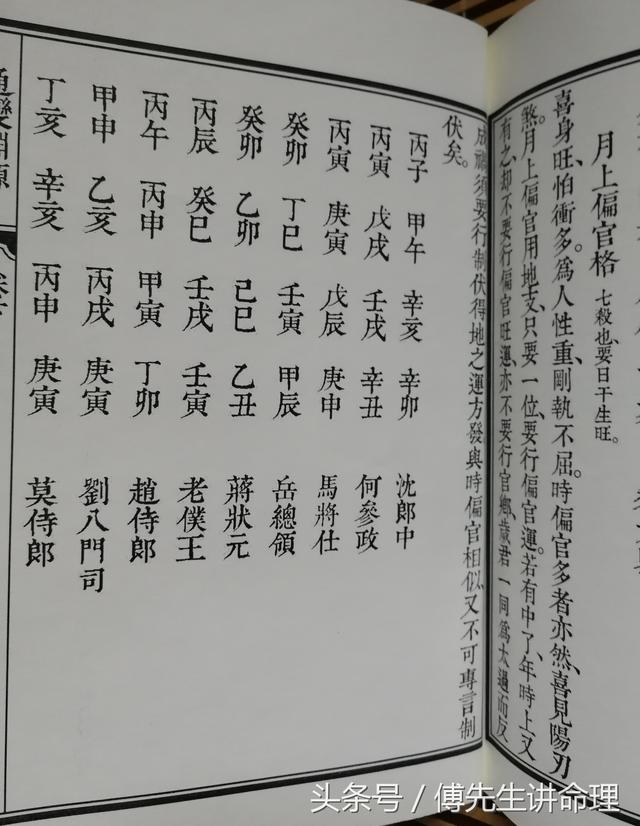 月上偏官格 七殺也、要日干生旺。
喜身旺、怕衝多。為人性重、剛執不屈。時偏官多者亦然、喜見陽刃
煞。月上偏官用地支、只要一位、要行偏官運。若有中了、年時上又
有之、却不要行偏官旺運、亦不要行官鄉、歲君一同、為太過而反
成禍、須要行制伏得地之運方發、與時偏官相似、又不可專言制
伏矣。
丙子 甲午 辛亥 辛卯 沈郎中
丙寅 戊戌 壬戌 辛丑 何參政
丙寅 庚寅 戊辰 庚申 馬將仕
癸卯 丁巳 壬寅 甲辰 岳總領
癸卯 乙卯 己巳 乙丑 蔣狀元
丙辰 癸巳 壬戌 壬寅 老僕王
丙午 丙申 甲寅 丁卯 趙侍郎
甲申 乙亥 丙戌 庚寅 劉八門司
丁亥 辛亥 丙申 庚寅 莫侍郎
淵源
头条号 / 傅先生讲命理